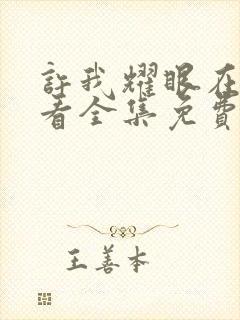 許我耀眼在
看全集免費
王善本